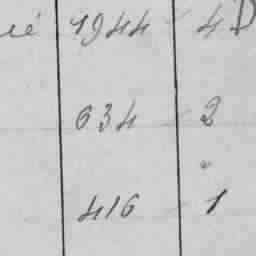 1944 4
634 2
416 1